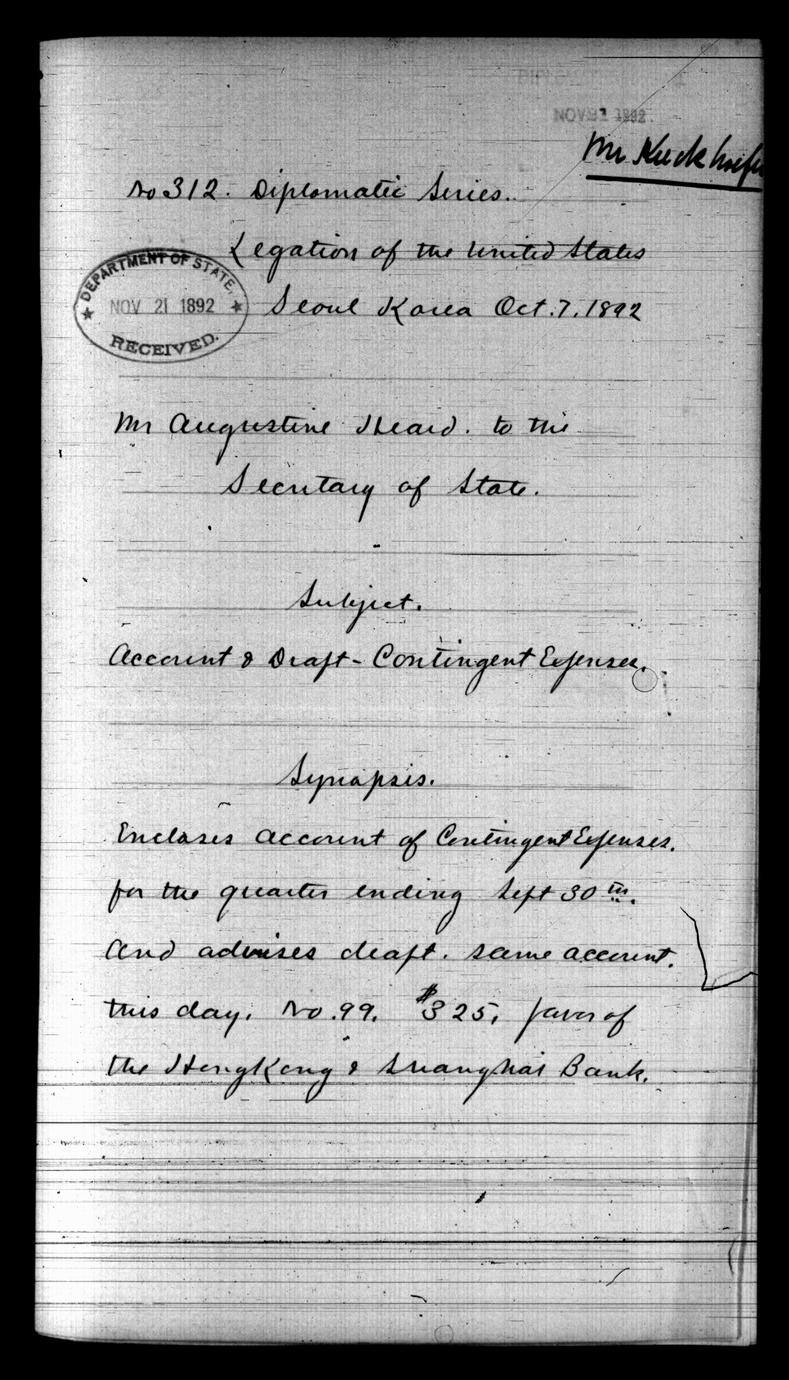 NOV 21 1892
Mr Kieckhoefer
No 312. Diplomatic Series.
Legation of the United States
DEPARTMENT OF STATE,
NOV 21 1892
RECEIVED.
Seoul Korea Oct. 7. 1892
Mr Augustine Heard. to the
Secretary of State.
Subject.
Account & Draft - Contingent Expenses.
Synopsis.
Encloses account of Contingent Expenses.
for the quarter ending Sept 30th.
And advises draft. same account.
this day. No. 99. $325. favor of
the HongKong & Shanghai Bank.